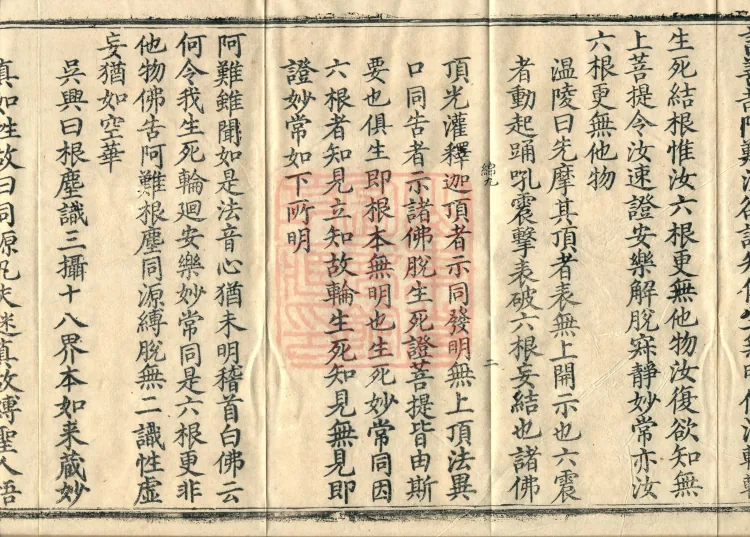 生死結根惟汝六根更無他物汝復欲知無
上菩提令汝速證安樂解脫寂靜妙常亦汝
六根更無他物
温陵曰先摩其頂者表無上開示也六震
者動起踊吼震擊表破六根妄結也諸佛
綿九
二
頂光灌釋迦頂者示同發明無上頂法異
口同告者示諸佛脫生死證菩提皆由斯
要也俱生即根本無明也生死妙常同因
六根者知見立知故輪生死知見無見即
證妙常如下所明
阿難雖聞如是法音心猶未明稽首白佛云
何令我生死輪廻安樂妙常同是六根更非
他物佛告阿難根塵同源縛脫無二識性虛
妄猶如空華
吳興曰根塵識三攝十八界本如来蔵妙
真如性故曰同源凡夫迷真故縛聖人悟